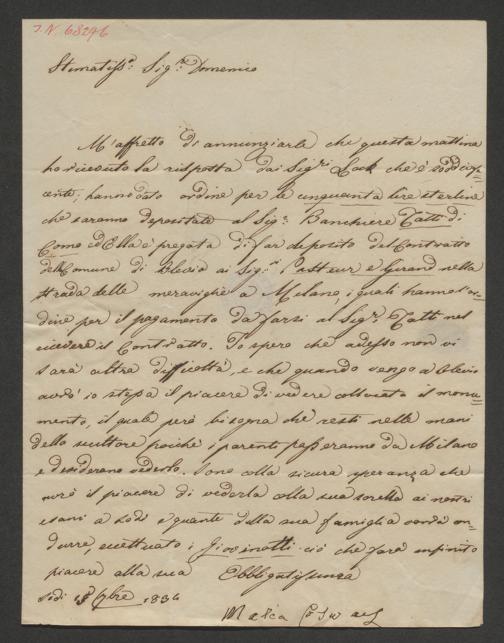 J.N. 68296
Stimatiss.º Sig.re Domenico
M'affretto di annunziarle che questa mattina
ho ricevuto la risposta dai Sig.ri Lock che è soddisfa-
cente; hanno dato ordine per le cinquanta lire sterline
che saranno depositate al Sig.r Banchiere Tatti di
Como ed Ella è pregata di far deposito del Contratto
del Comune di Blevio ai Sig.ri Pasteur e Girard nella
strada delle meraviglie a Milano, i quali hanno l'or-
dine per il pagamento da farsi al Sig.r Tatti nel
ricevere il Contratto. Io spero che adesso non vi
sarà altra difficoltà, e che quando vengo a Blevio
avrò io stessa il piacere di vedere collocato il monu-
mento, il quale però bisogna che resti nelle mani
dello scultore poiché i parenti passeranno da Milano
e desiderano vederlo. Sono colla sicura speranza che
avrò il piacere di vederla colla sua sorella ai nostri
esami a Lodi e quante della sua famiglia vorrà con-
durre, eccettuato i Giovinotti ciò che farà infinito
piacere alla sua Obbligatissima
Lodi 7bre 1834
Maria Cosway